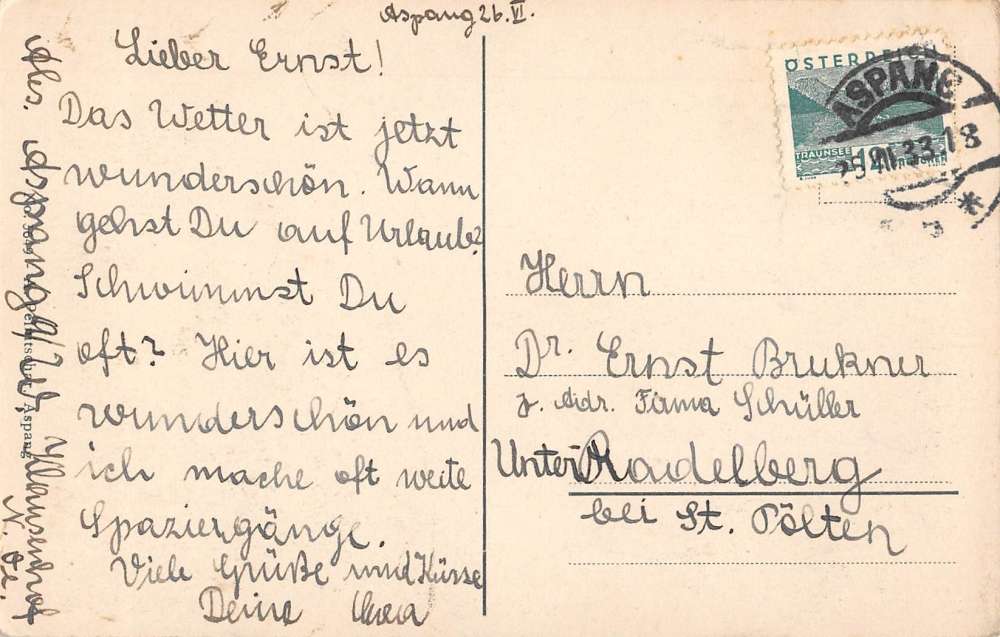 Aspang 26. VI.
Lieber Ernst!
Das Wetter ist jetzt
wunderschön. Wann
gehst Du auf Urlaub?
Schwimmst Du
oft? Hier ist es
wunderschön und
ich mache oft weite
Spaziergänge.
Viele Grüße und Küsse
Deine
Abs. Aspang
N. Oe.
Aspang
ÖSTERREICH
TRAUNSEE
12 GROSCHEN
ASPANG
33.18
Herrn
Dr. Ernst Brukner
p. Adr. Firma Schüller
Unter Radelberg
bei St. Pölten